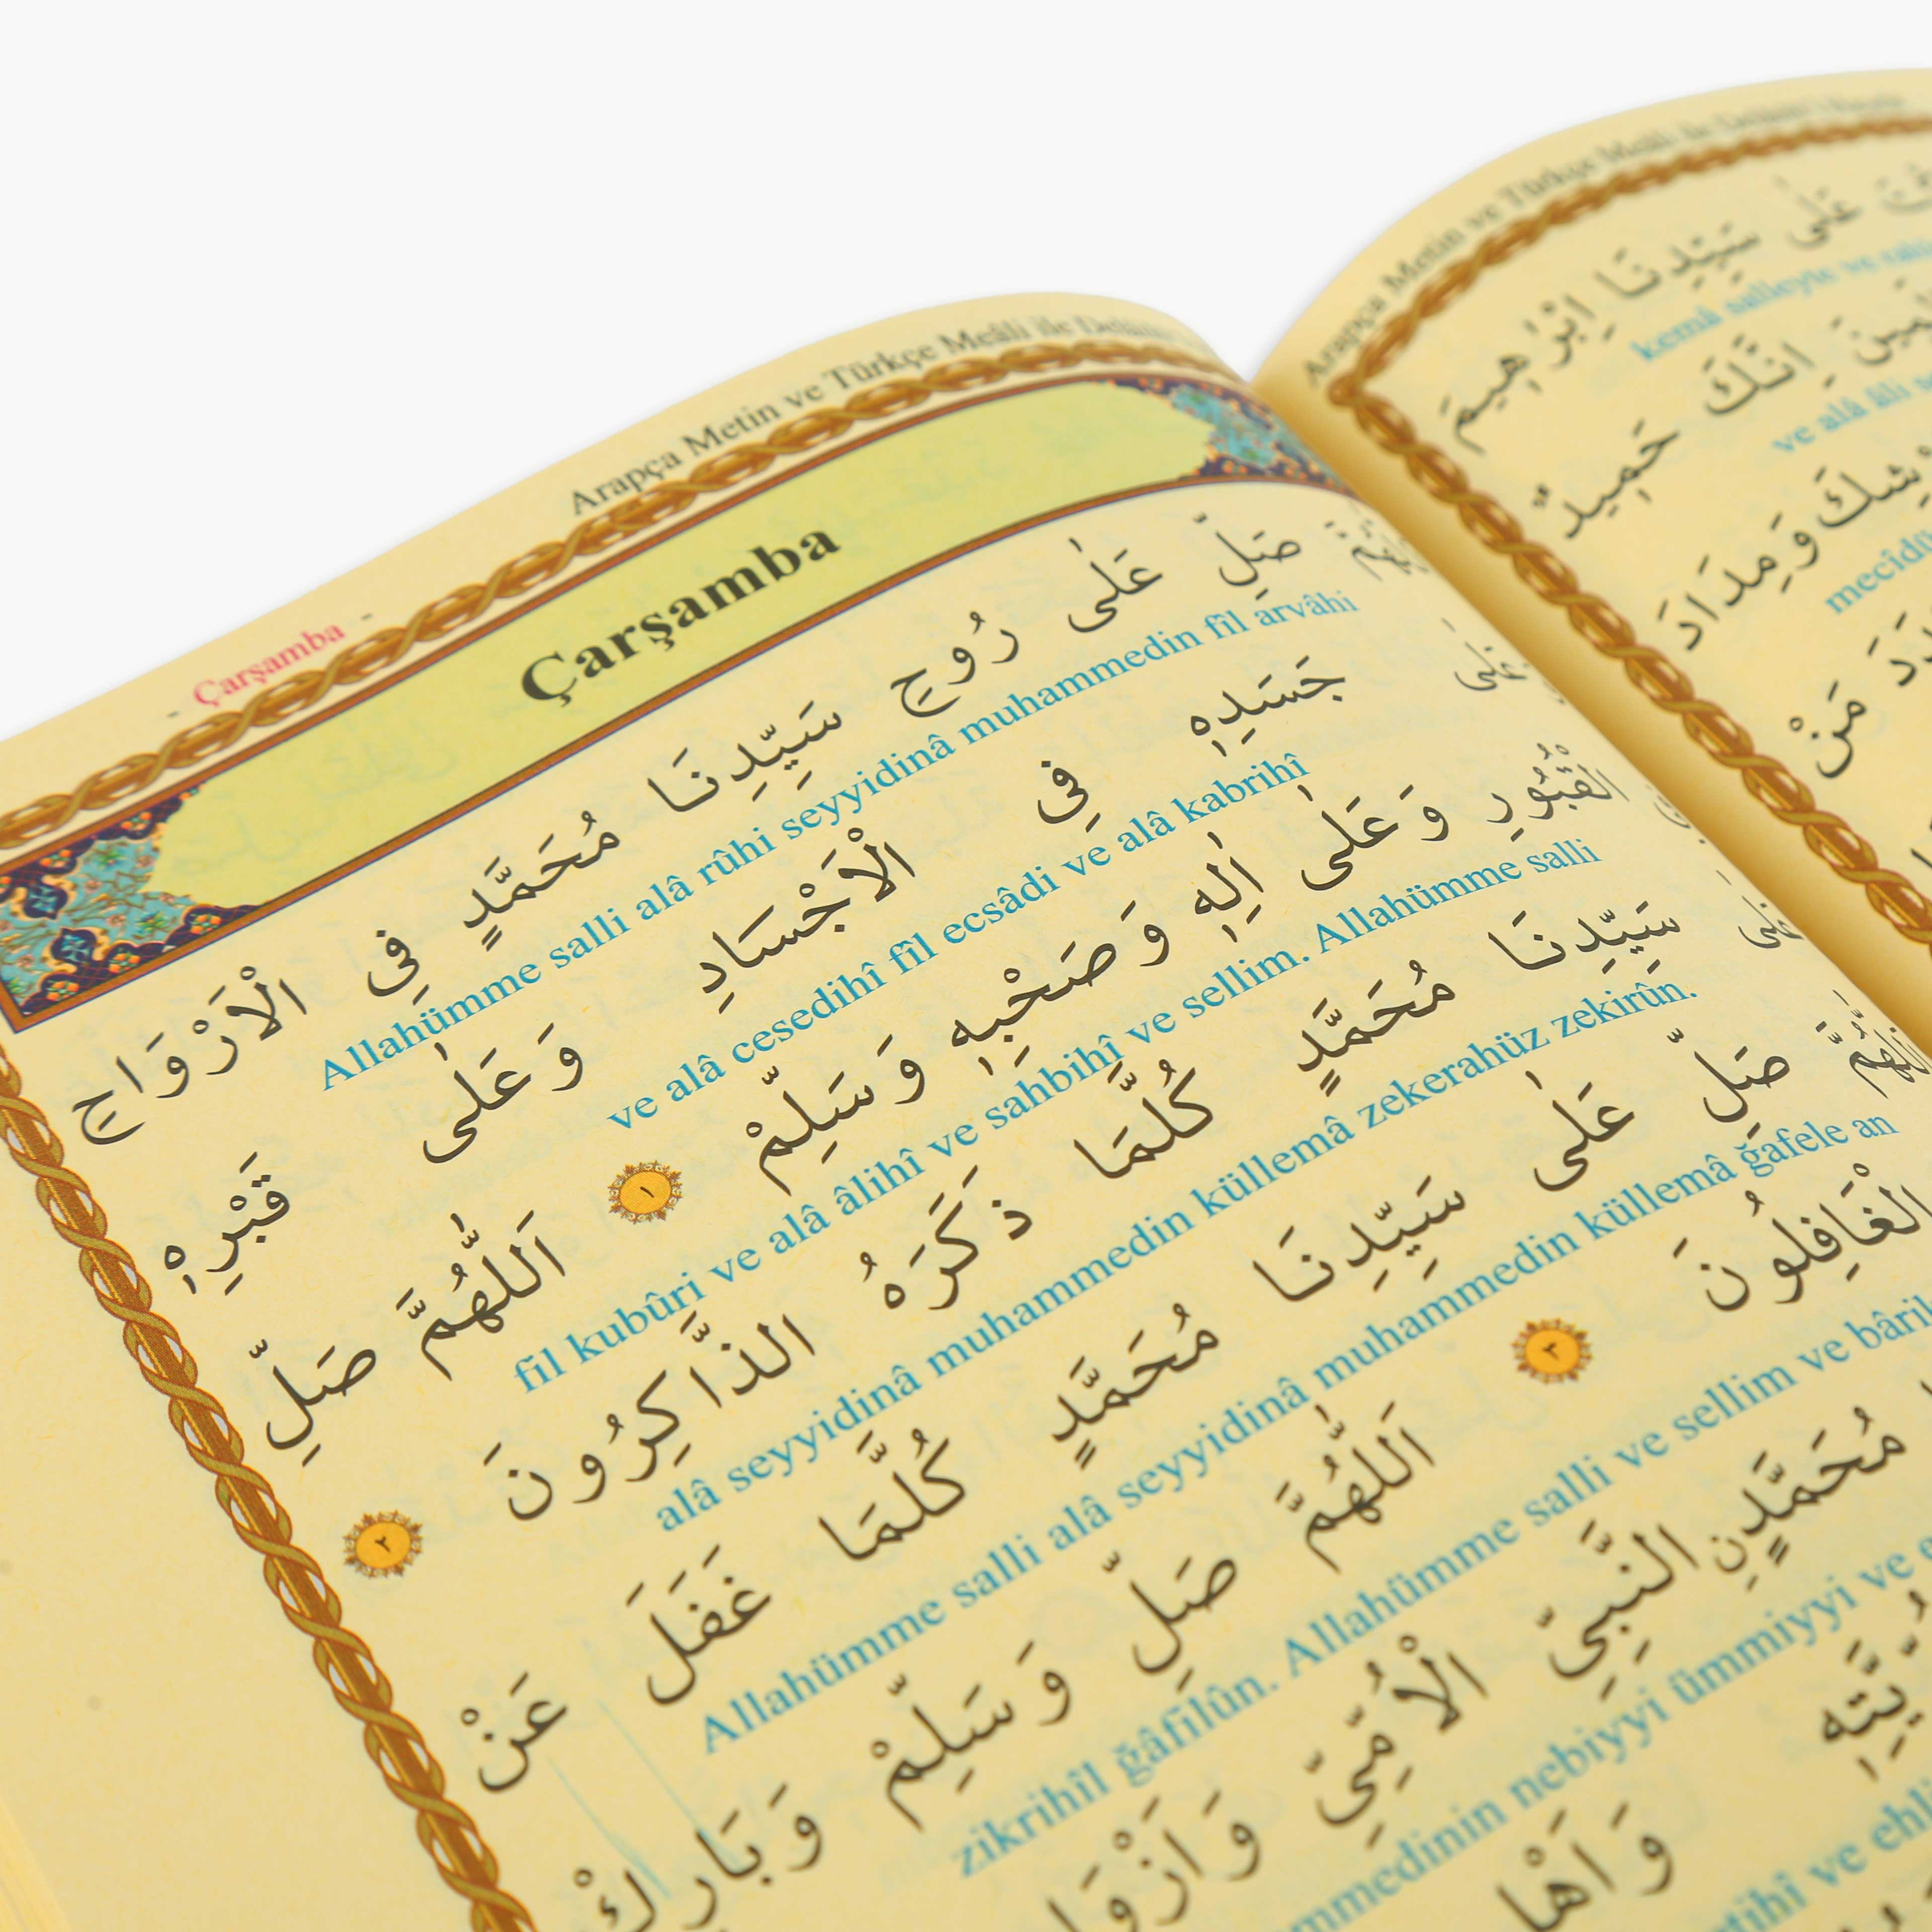 Arapça Metin ve Türkçe Meâli ile
- Çarşamba -
Çarşamba
صَلِّ عَلٰى رُوحِ سَيِّدِنَا مُحَمَّدٍ فِى الْاَرْوَاحِ
Allahümme salli alâ rûhi seyyidinâ muhammedin fîl arvâhi
جَسَدِهٖ فِى الْاَجْسَادِ وَعَلٰى قَبْرِهٖ
ve alâ cesedihî fîl ecsâdi ve alâ kabrihî
الْقُبُورِ وَعَلٰى اٰلِهٖ وَصَحْبِهٖ وَسَلِّمْ ١ اَللّٰهُمَّ صَلِّ
fil kubûri ve alâ âlihî ve sahbihî ve sellim. Allahümme salli
عَلٰى سَيِّدِنَا مُحَمَّدٍ كُلَّمَا ذَكَرَهُ الذَّاكِرُونَ ٢
alâ seyyidinâ muhammedin küllemâ zekerahüz zekirûn.
اَللّٰهُمَّ صَلِّ عَلٰى سَيِّدِنَا مُحَمَّدٍ كُلَّمَا غَفَلَ عَنْ
Allahümme salli alâ seyyidinâ muhammedin küllemâ ğafele an
الْغَافِلُونَ ٣ اَللّٰهُمَّ صَلِّ وَسَلِّمْ وَبَارِكْ
zikrihîl ğâfilûn. Allahümme salli ve sellim ve
مُحَمَّدٍنِ النَّبِىِّ الْاُمِّىِّ
nebiyyi ümmiyyi ve
ve
Arapça Metin ve Türkçe Meâli ile
عَلٰى سَيِّدِنَا اِبْرٰهِيمَ
kemâ salleyte ve
اِنَّكَ حَمِيدٌ
ve alâ âli
وَمِدَادَ
مَنْ